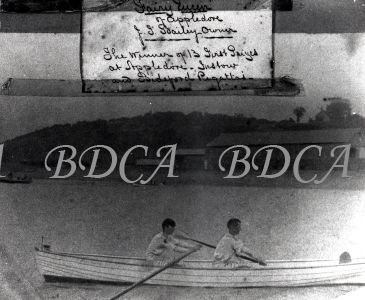 Fairy Queen
of Appledore
J. T. Bailey Owner
The Winner of 13 First Prizes
at Appledore - Instow
and Bideford Regattas
BDCA BDCA